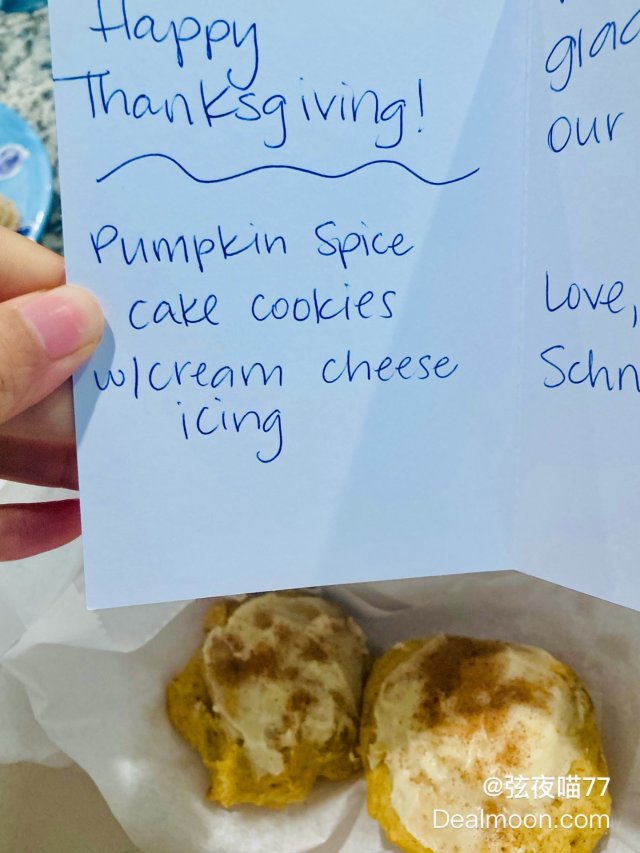 Happy
Thanksgiving!
Pumpkin Spice
cake cookies
w/cream cheese
icing
our
Love,
@弦夜喵77
Dealmoon.com